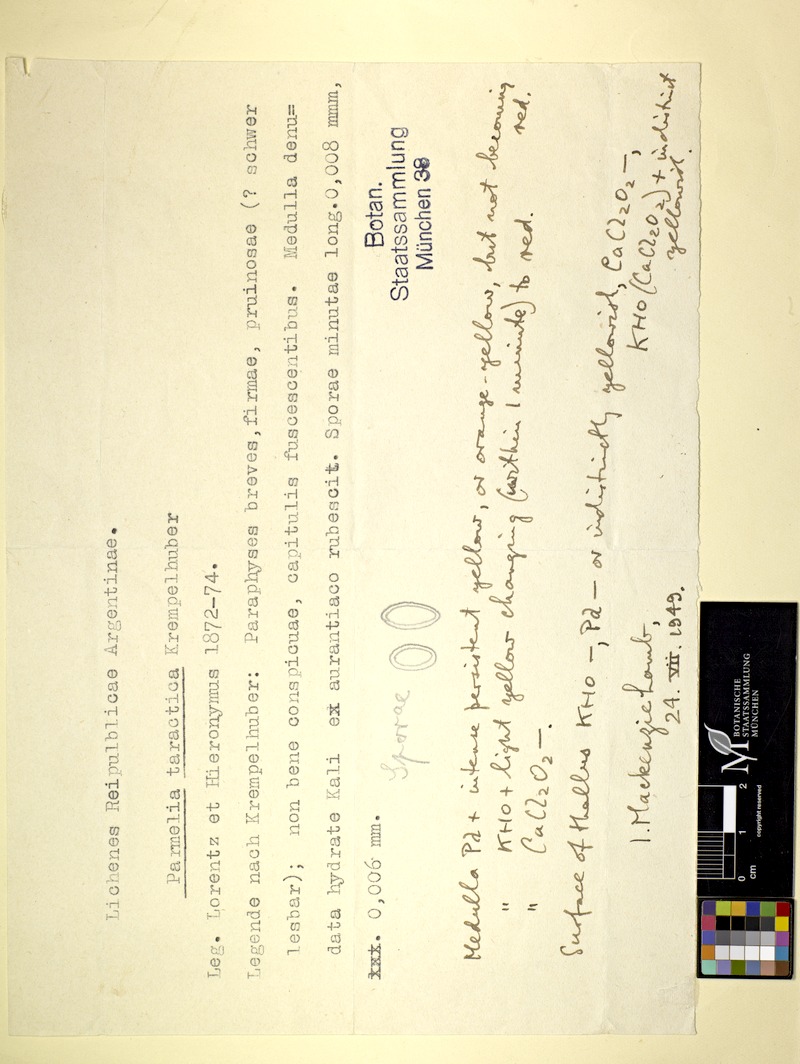 Lichenes Reipublicae Argentinae.
Parmelia taractica Krempelhuber
Leg. Lorentz et Hieronymus 1872-74.
Legende nach Krempelhuber: Paraphyses breves, firmae, pruinosae (? schwer
lesbar); non bene conspicuae, capitulis fuscescentibus. Medulla denu=
data hydrate Kali ex aurantiaco rubescit. Sporae minutae long. 0,008 mmm,
xxx. 0,006 mm.
Botan.
Staatssammlung
München 38
Sporae
Medulla Pd + intense persistent yellow, or orange-yellow, but not becoming red.
" KHO + light yellow changing (within 1 minute) to red.
" CaCl₂O₂ —.
Surface of thallus KHO —, Pd — or indistinctly yellowish, CaCl₂O₂ —,
KHO (CaCl₂O₂) + indistinct
yellowish.
I. Mackenzie Lamb,
24. VII. 1949.
0 1 2
cm
copyright reserved
BOTANISCHE
STAATSSAMMLUNG
MÜNCHEN